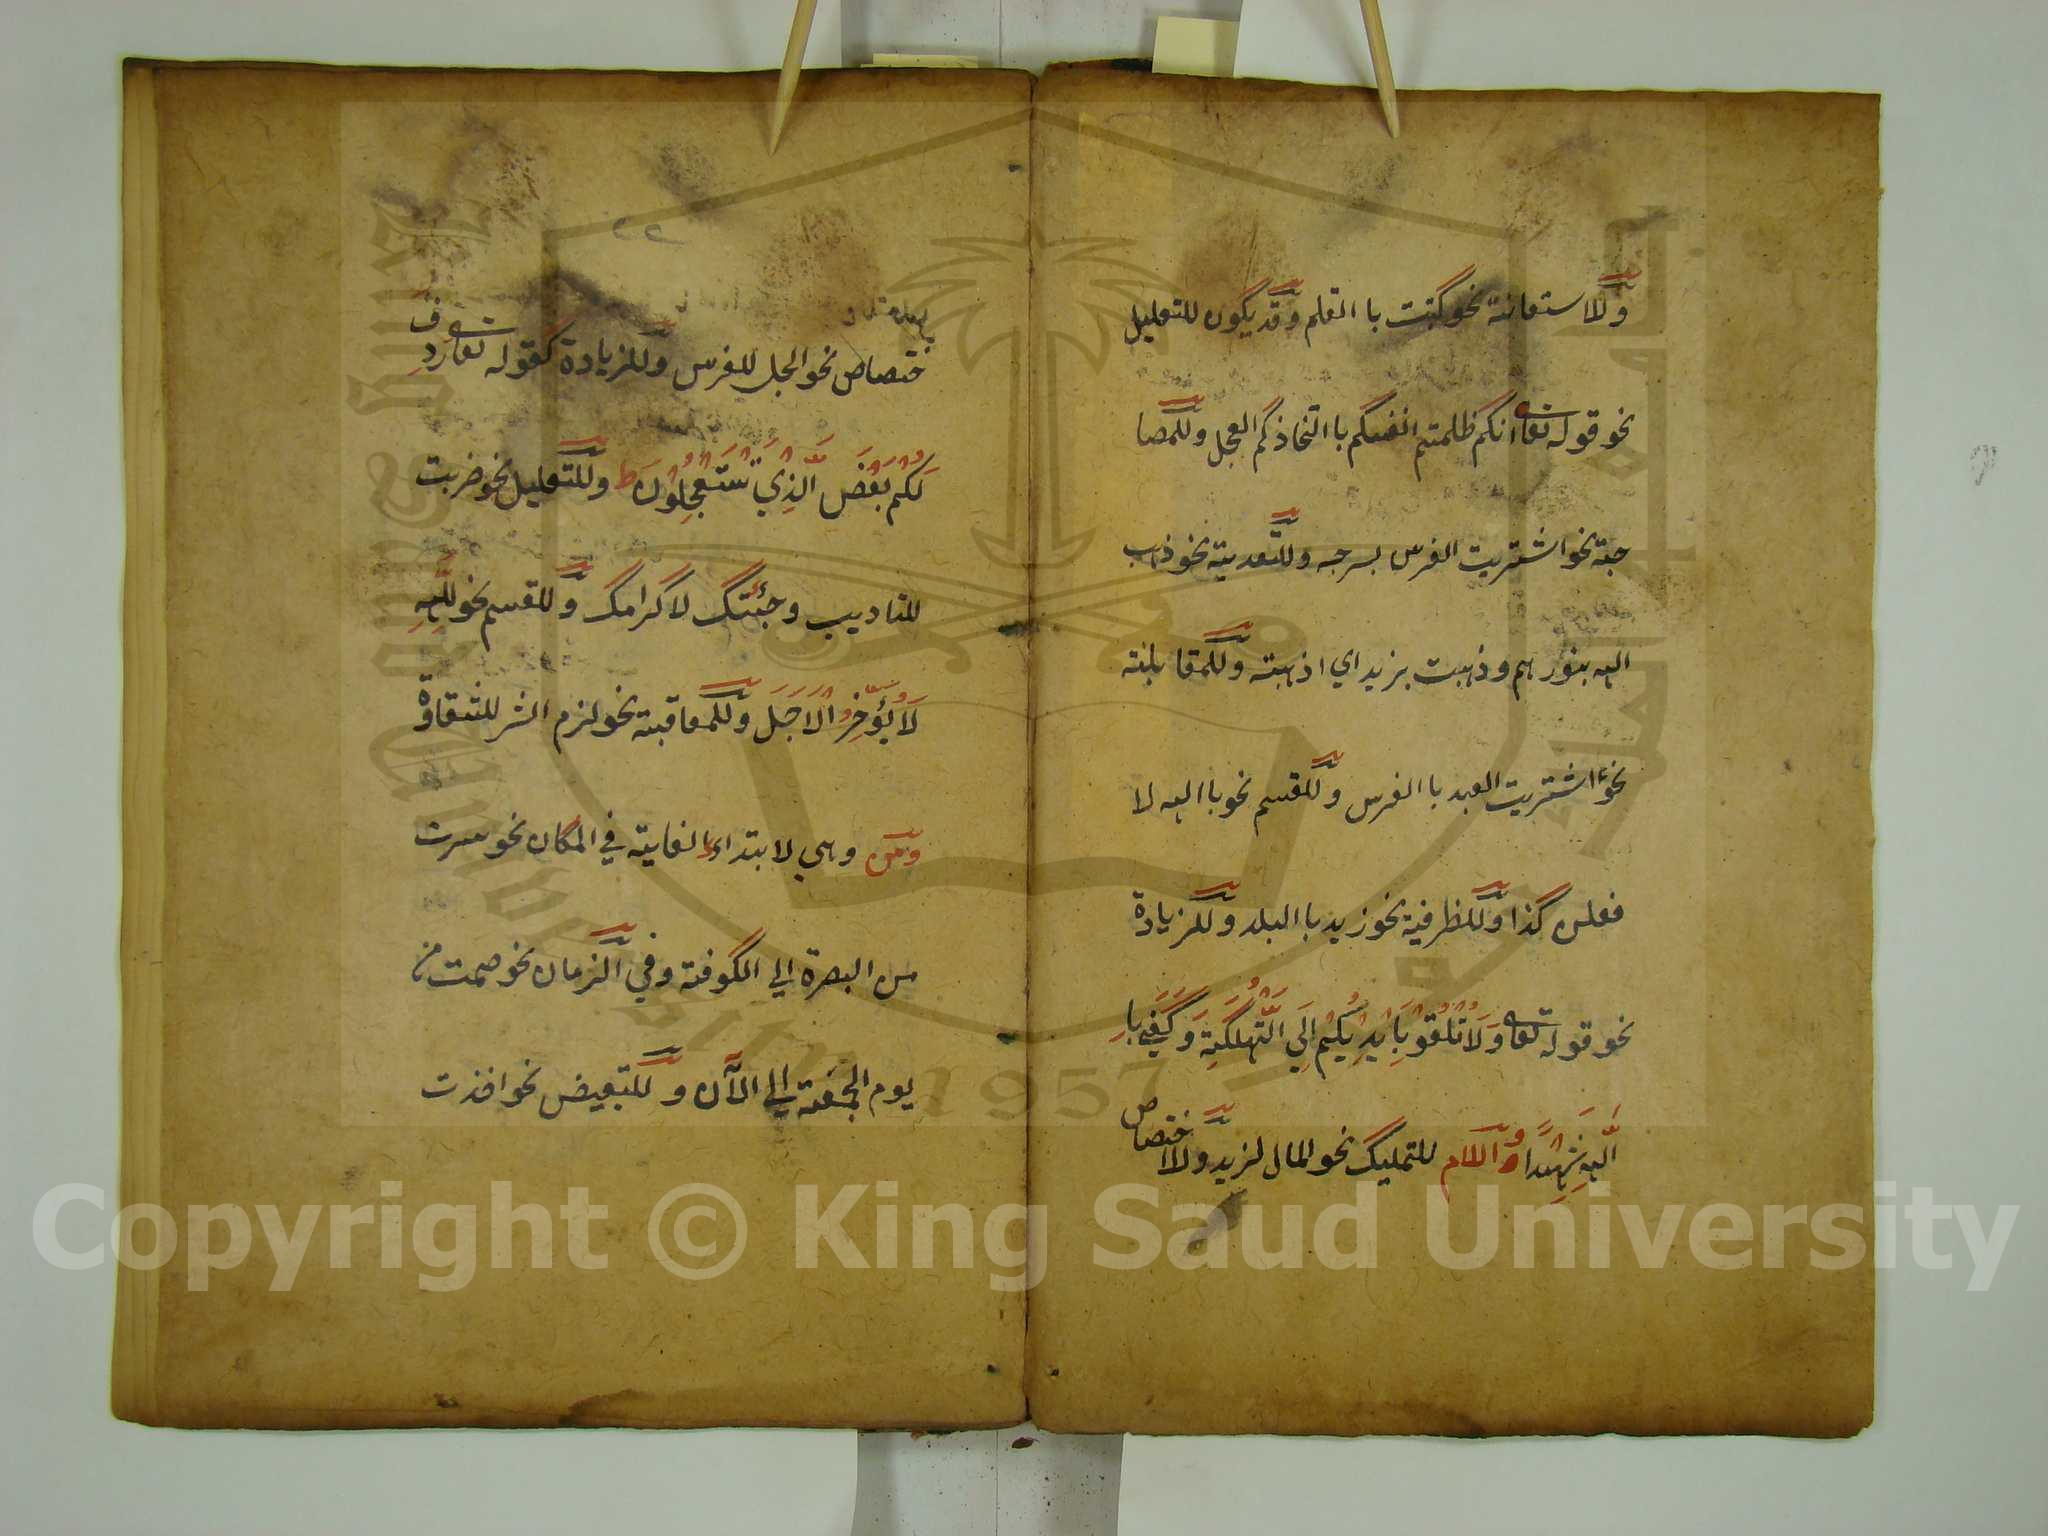 وللاستعانة نحو كتبت باالقلم وقد يكون للتعليل
نحو قوله تعا انكم ظلمتم انفسكم باالتخاذكم العجل وللمصا
حبة نحو اشتريت الفرس بسرجه وللتعدية نحو ذهب
الله بنورهم وذهبت بزيد اي اذهبته وللمقابلة
نحو اشتريت العبد باالفرس وللقسم نحو باالله لا
فعلن كذا وللظرفية نحو زيد باالبلد وللزيادة
نحو قوله تعا وَلَا تُلْقُوبِاَيْدِيْكُمْ اِلَي التَّهْلُكَةِ وَكَفَي بِا
اللهِ شَهِيْدًا واللام للتمليك نحو المال لزيد وللاختصاص
٢٢
ختصاص نحو الجل للفرس وللزيادة كقوله تعا ردف
لَكُمْ بَعْضَ الَّذِيْ تَسْتَعْجِلُوْنَ ط وللتعليل نحو ضربت
للتاديب وجئتك لاكرامك وللقسم نحو لِلّٰهِ
لَا يُؤَخِّرُ الْاَجَلَ وللمعاقبة نحو لزم الشر للشقاوة
ومن وهي لابتداء الغاية في المكان نحو سرت
من البصرة الي الكوفة وفي الزمان نحو صمت من
يوم الجمعة الي الآن وللتبعيض نحو اخذت
Copyright © King Saud University
1957